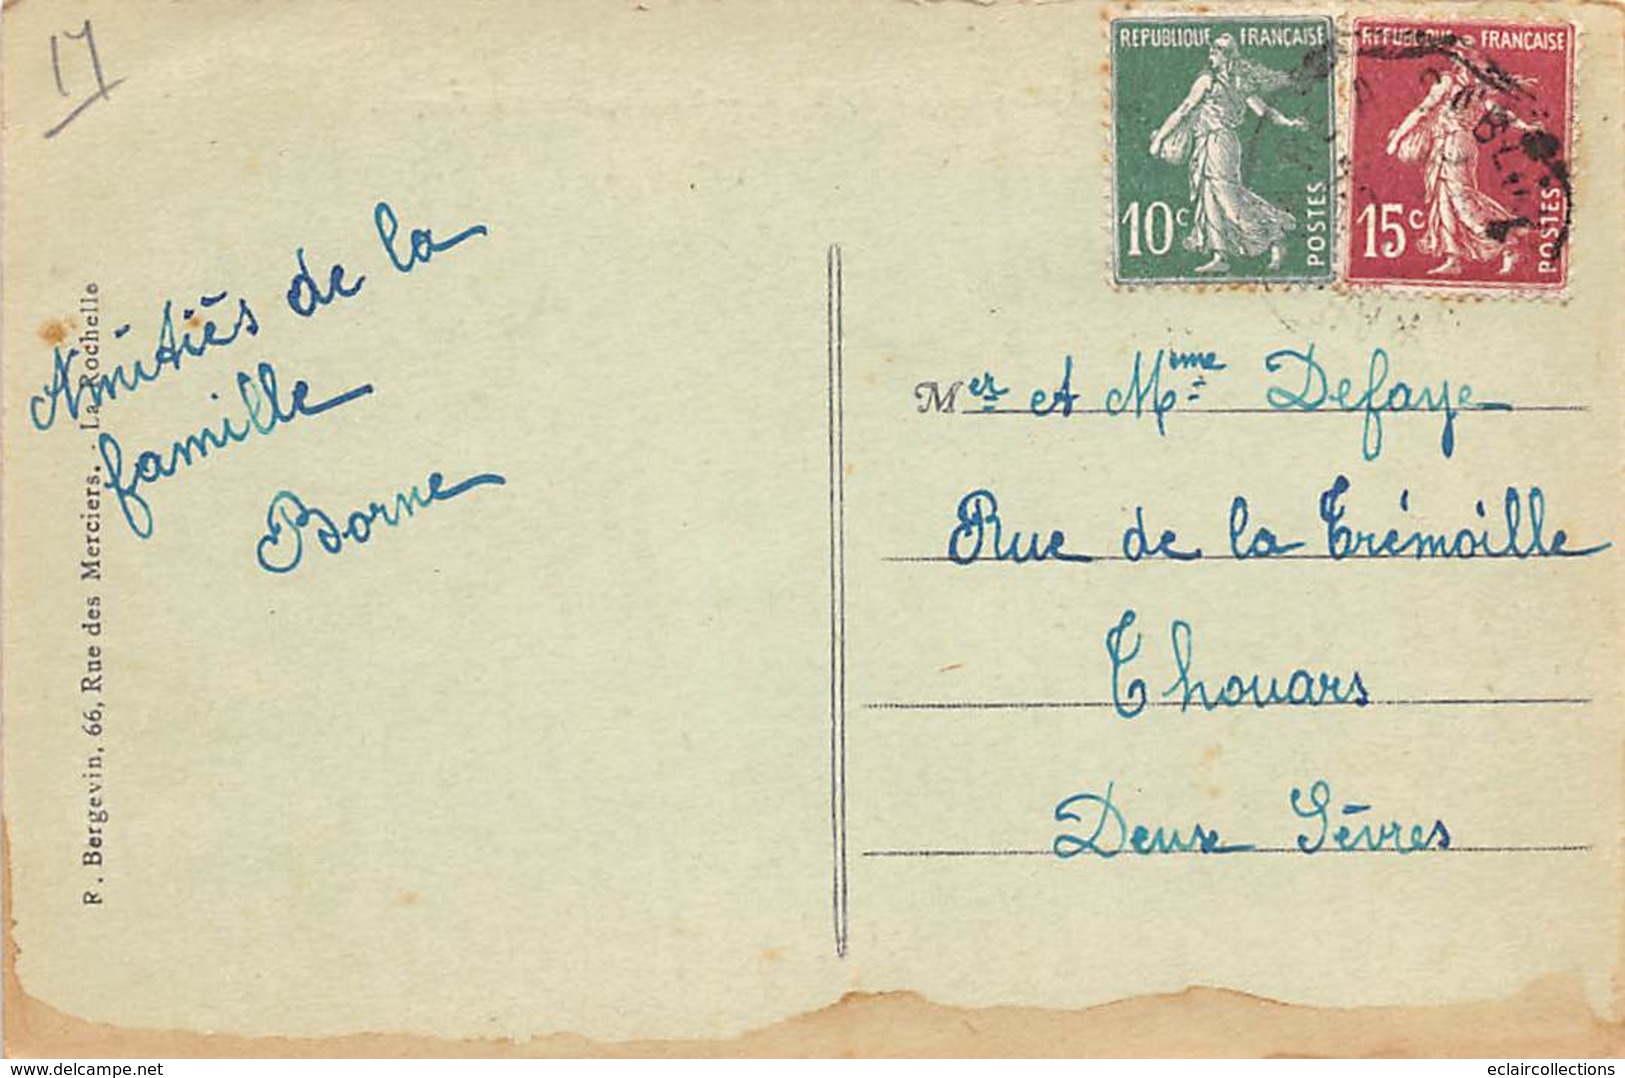 17
REPUBLIQUE FRANÇAISE
10c
POSTES
REPUBLIQUE FRANÇAISE
15c
POSTES
Amitiés de la
famille
Borne
Mer et Mme Defaye
Rue de la Trémoille
Thouars
Deux Sèvres
F. Bergevin, 66, Rue des Merciers. - La Rochelle
https://www.delcampe.net
eclaircollections